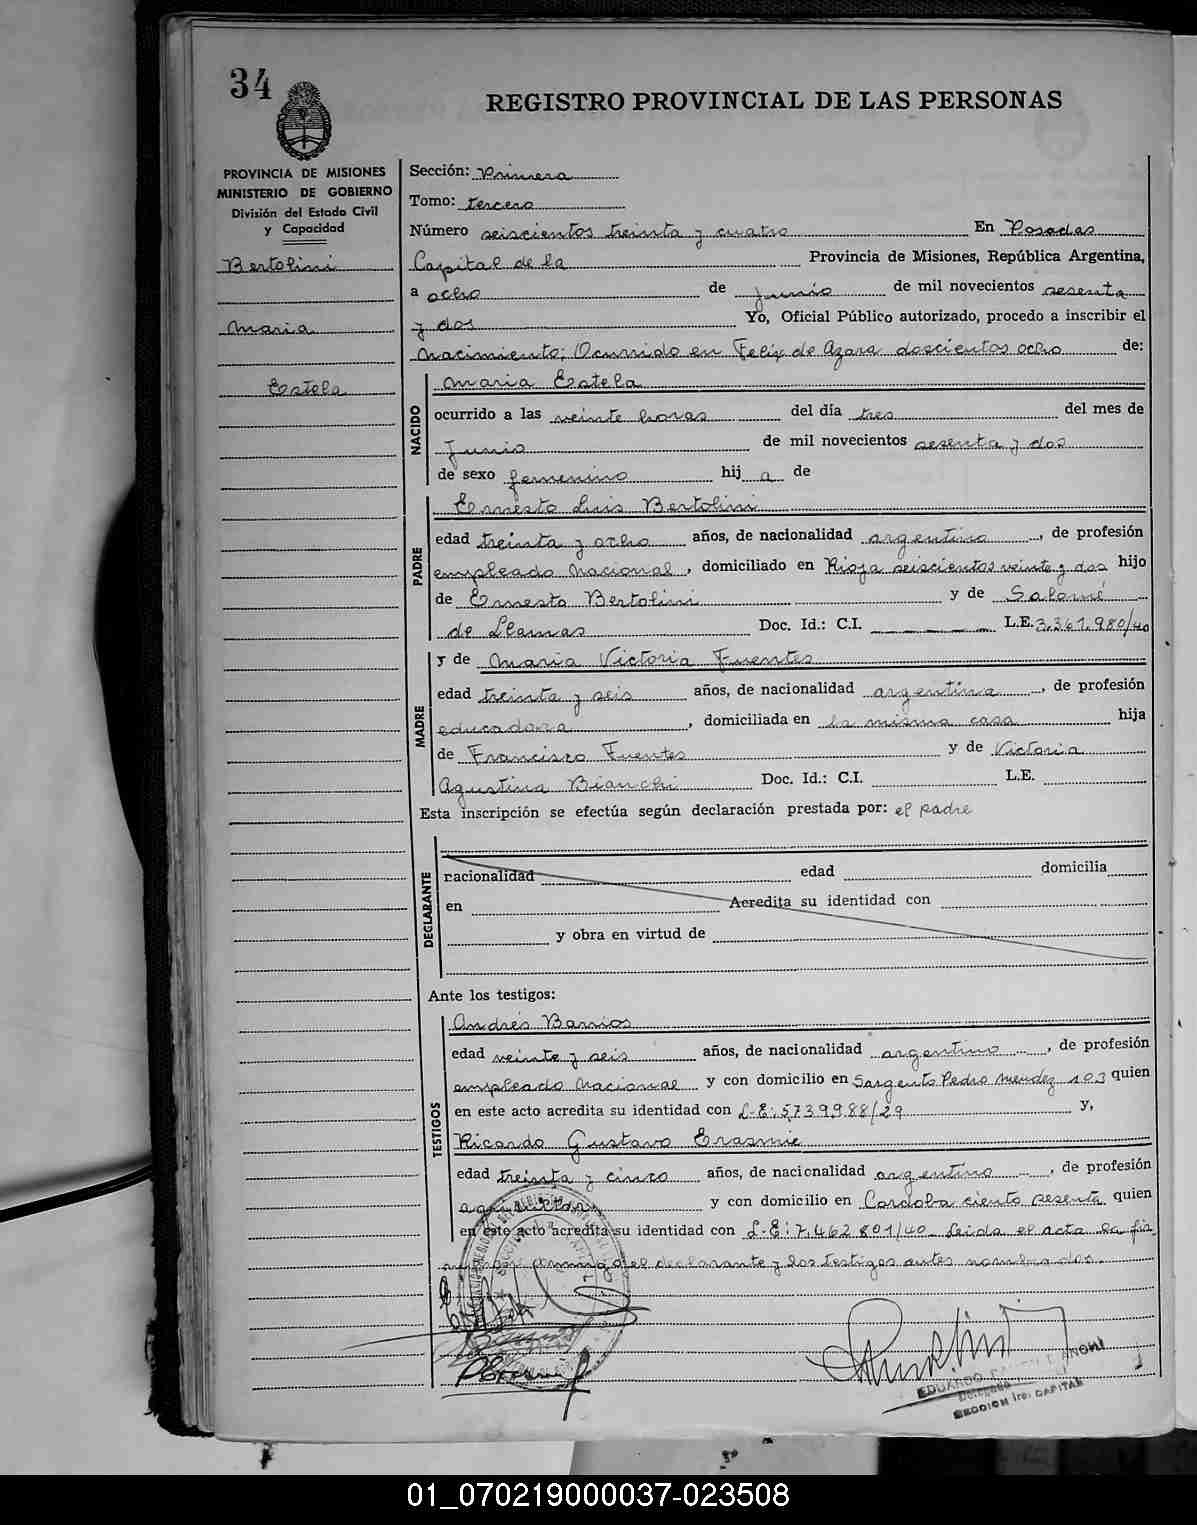 34
REGISTRO PROVINCIAL DE LAS PERSONAS
PROVINCIA DE MISIONES
MINISTERIO DE GOBIERNO
División del Estado Civil
y Capacidad
Bertolini
Maria
Estela
Sección: Primera
Tomo: tercero
Número seiscientos treinta y cuatro En Posadas
Capital de la Provincia de Misiones, República Argentina,
a ocho de Junio de mil novecientos sesenta
y dos Yo, Oficial Público autorizado, procedo a inscribir el
Nacimiento; Ocurrido en Felix de Azara doscientos ocho de:
NACIDO
Maria Estela
ocurrido a las veinte horas del día tres del mes de
Junio de mil novecientos sesenta y dos
de sexo femenino hij a de
PADRE
Ernesto Luis Bertolini
edad treinta y ocho años, de nacionalidad argentino, de profesión
empleado Nacional, domiciliado en Rioja seiscientos veinte y dos hijo
de Ernesto Bertolini y de Salomé
de Llamas Doc. Id.: C.I. L.E. 3.361.980/40
MADRE
y de Maria Victoria Fuentes
edad treinta y seis años, de nacionalidad argentina, de profesión
educadora, domiciliada en la misma casa hija
de Francisco Fuentes y de Victoria
Agustina Bianchi Doc. Id.: C.I. L.E.
Esta inscripción se efectúa según declaración prestada por: el padre
DECLARANTE
nacionalidad edad domicilia
en Acredita su identidad con
y obra en virtud de
Ante los testigos:
TESTIGOS
Andrés Barrios
edad veinte y seis años, de nacionalidad argentino, de profesión
empleado Nacional y con domicilio en Sargento Pedro Mendez 103 quien
en este acto acredita su identidad con L-E: 5.739.988/29 y,
Ricardo Gustavo Erasmie
edad treinta y cinco años, de nacionalidad argentino, de profesión
agricultor y con domicilio en Cordoba ciento sesenta quien
en este acto acredita su identidad con L-E: 7.462.801/40 Leida el acta la fir
conmigo el declarante y los testigos antes nombrados.
EDUARDO
Delegado
SECCION 1ra. CAPITAL
01_070219000037-023508